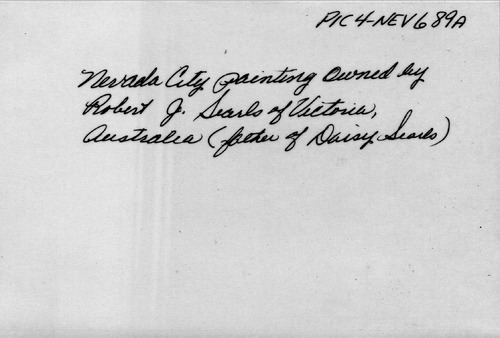 PIC 4-NEV 6 89A
Nevada City painting owned by
Robert J. Searls of Victoria,
Australia (father of Daisy Searls)